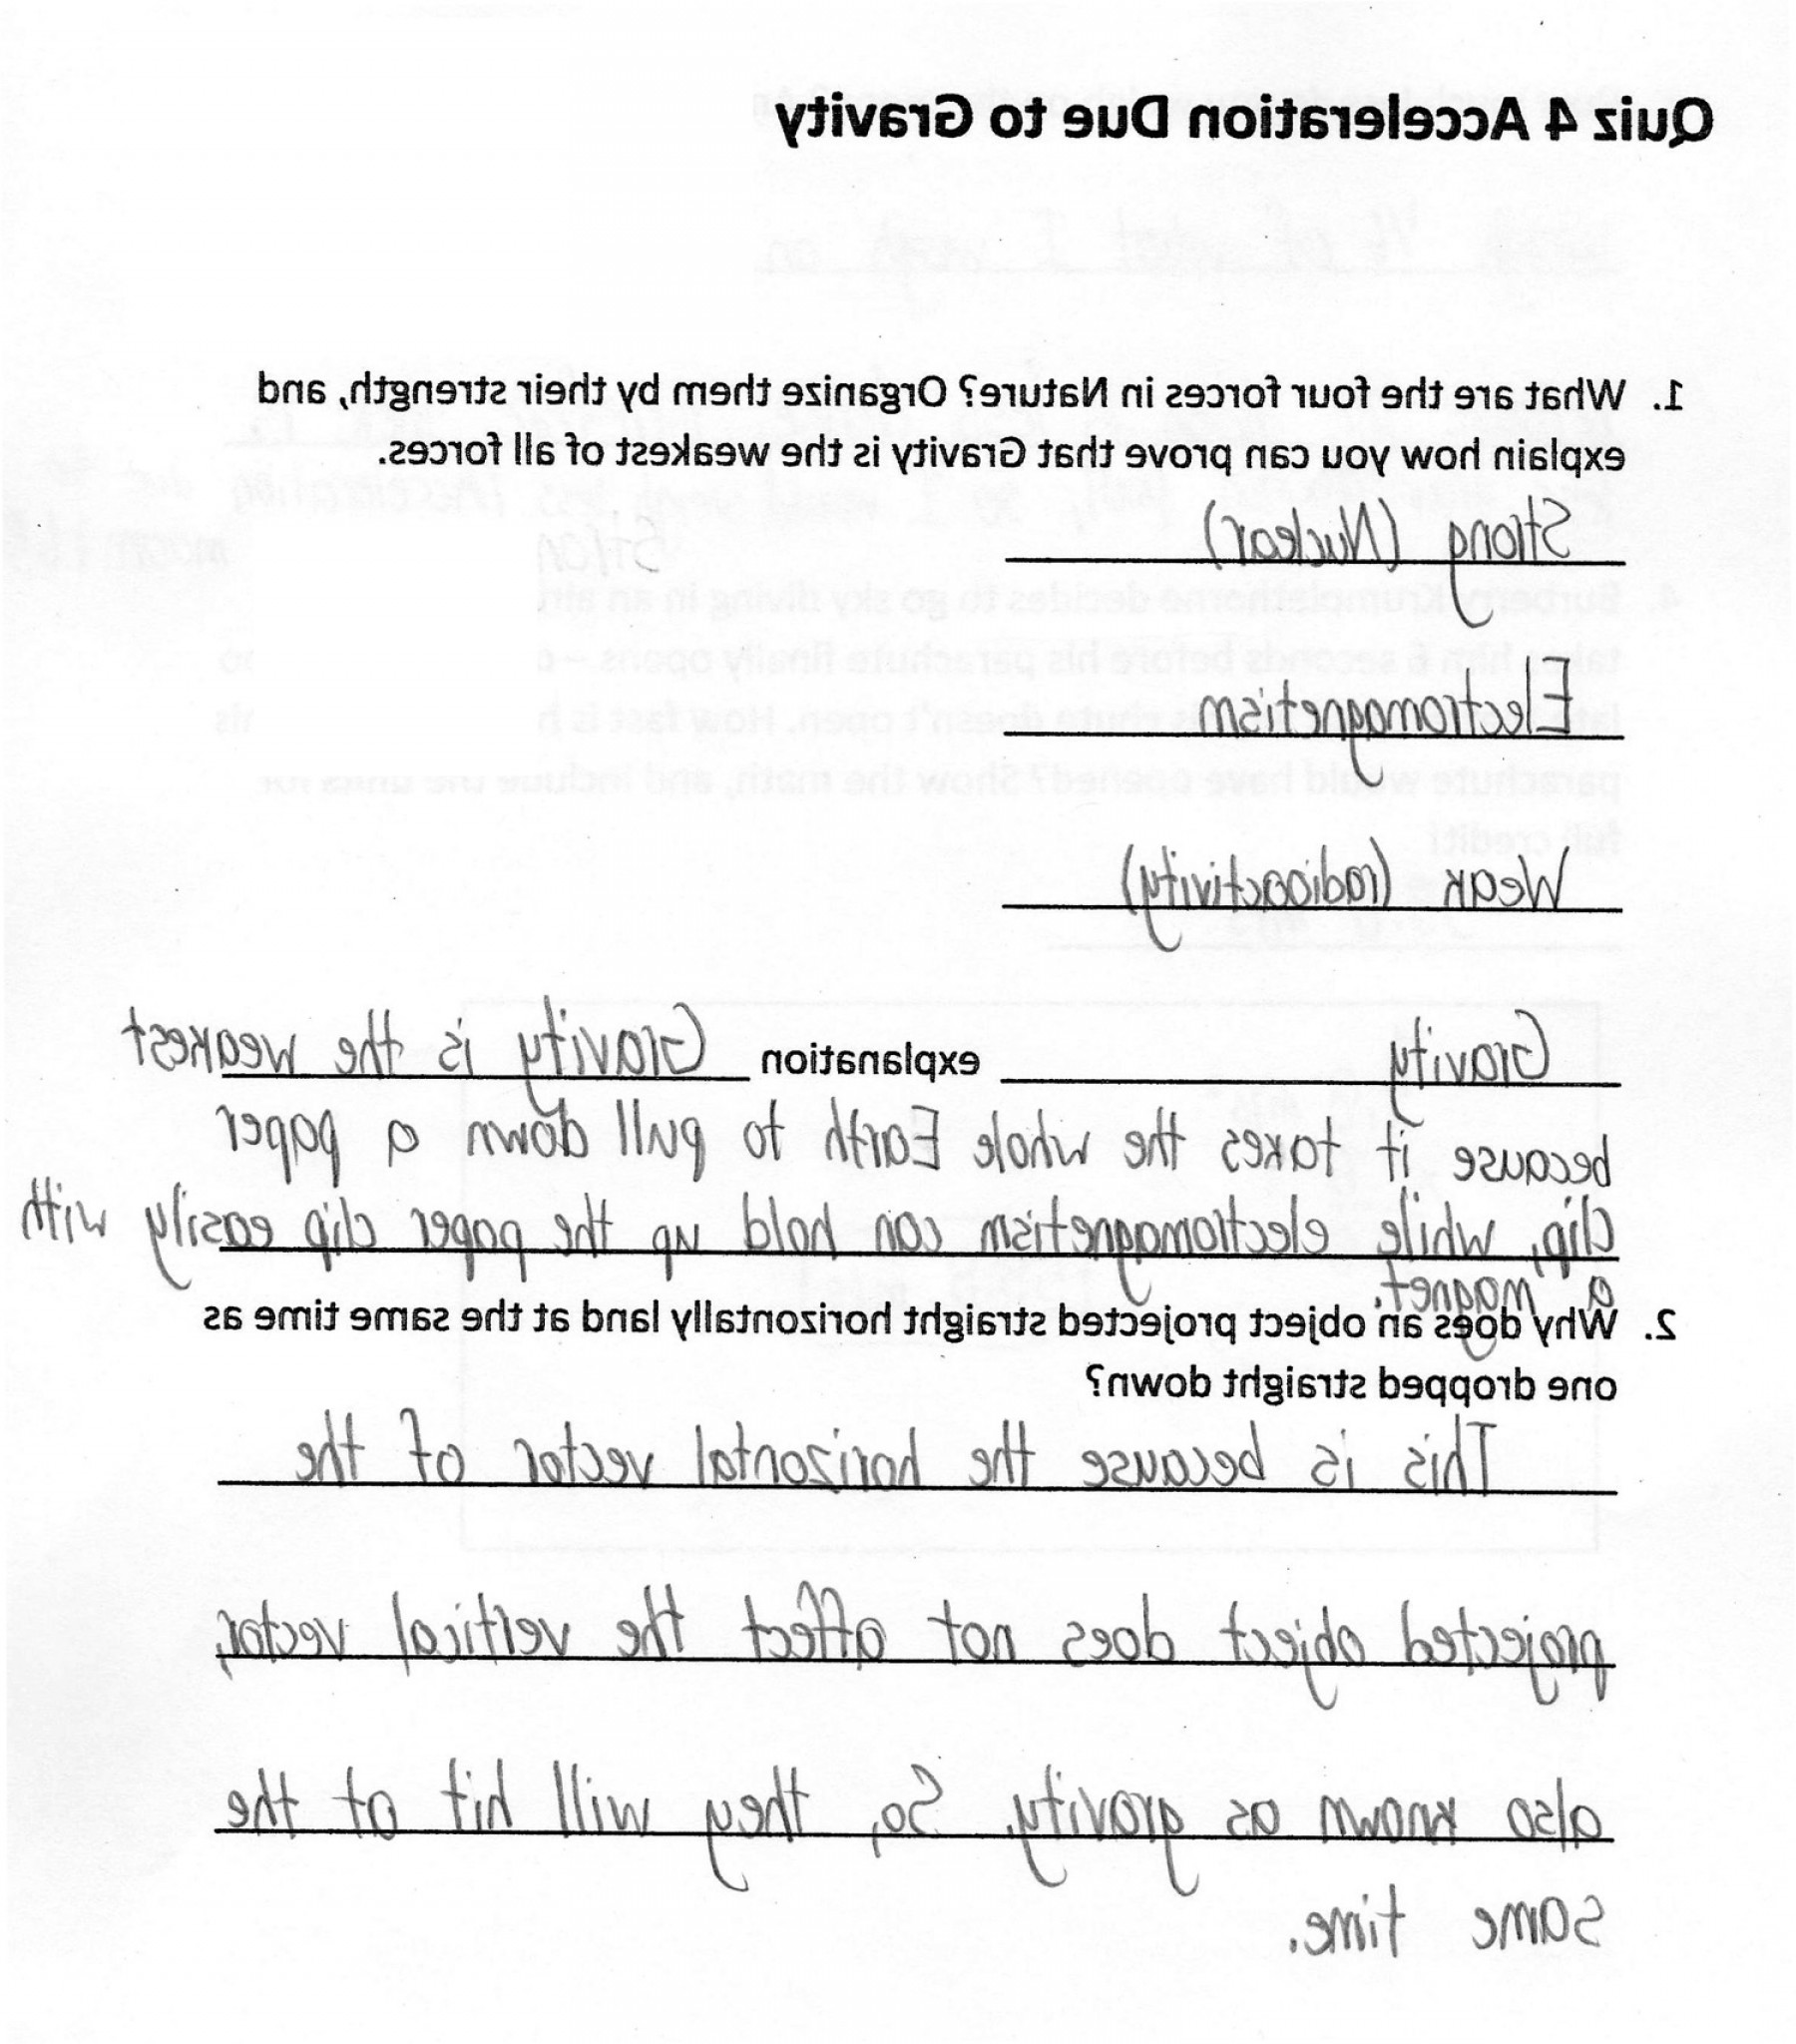 Quiz 4 Acceleration Due to Gravity
1. What are the four forces in Nature? Organize them by their strength, and
explain how you can prove that Gravity is the weakest of all forces.
Strong (Nuclear)
Electromagnetism
Weak (radioactivity)
Gravity explanation Gravity is the weakest
because it takes the whole Earth to pull down a paper
clip, while electromagnetism can hold up the paper clip easily with
a magnet.
2. Why does an object projected straight horizontally land at the same time as
one dropped straight down?
This is because the horizontal vector of the
projected object does not affect the vertical vector,
also known as gravity. So, they will hit at the
same time.